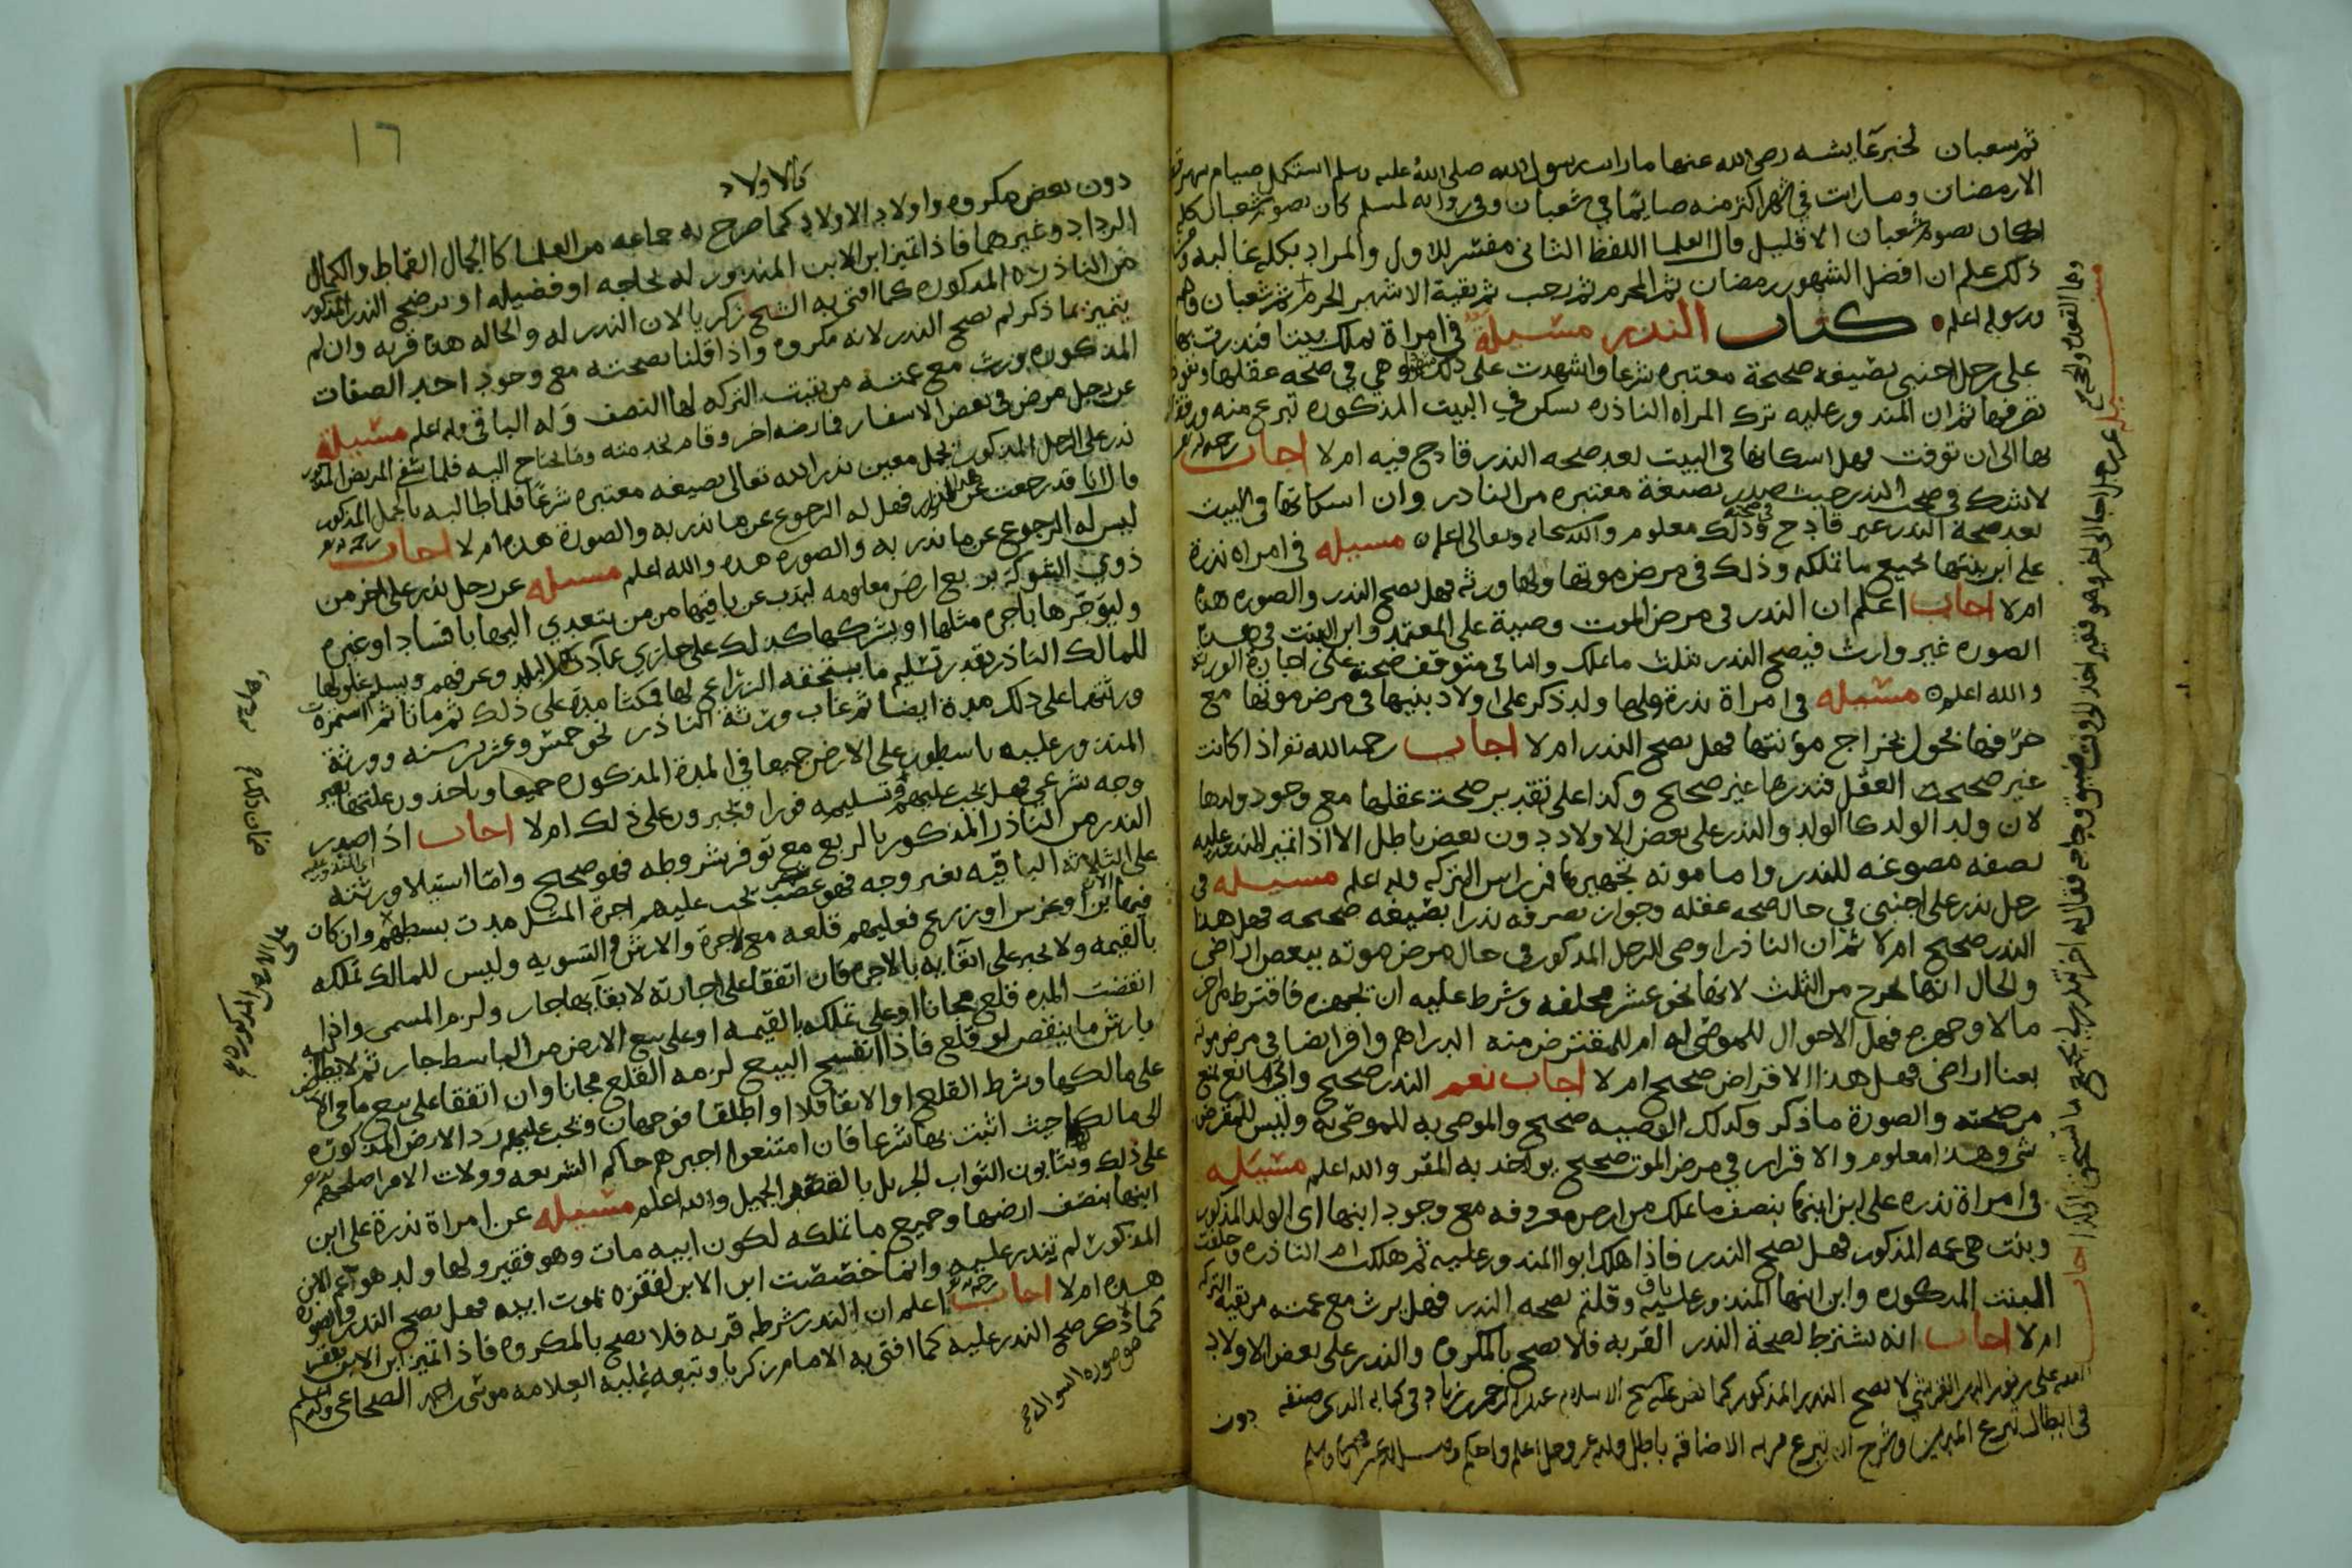 ثم شعبان لخبر عايشه رضي الله عنها ما رايت رسول الله صلى الله عليه وسلم استكمل صيام شهر قط
الا رمضان وما رايت في شهر اكثر منه صايمًا في شعبان وفي روايه لمسلم كان يصوم شعبان كله
كان يصوم شعبان الا قليل قال العلما اللفظ الثانى مفسّر للاول والمراد بكله غالبه
ذلك علم ان افضل الشهور رمضان ثم المحرم ثم رجب ثم بقية الاشهر الحرم ثم شعبان
ورسوله اعلم كتاب النذر مسيلة في امراة تملك بيتا فنذرت بها
على رجل اجنبى بصيغه صحيحة معتبره شرعا واشهدت على ذلك وهي في صحه عقلها
تصرفها ثم ان المنذور عليه ترك المراه الناذره تسكن في البيت المذكوره تبرع منه
بها الى ان توفت فهل اسكانها في البيت بعد صحه النذر قادح فيه ام لا اجاب
لا شك في صحت النذر حيث صدر بصيغة معتبره من النادر وان اسكانها في البيت
بعد صحة النذر غير قادح في صحته وذلك معلوم والله سبحانه وتعالى اعلم مسيله في امراه نذرة
على ابن بنتها بجميع ما تملكه وذلك في مرض موتها ولها ورثه فهل يصح النذر والصوره هذه
ام لا اجاب اعلم ان النذر في مرض الموت وصية على المعتمد وابن البنت في هذه
الصوره غير وارث فيصح النذر بثلث ما تملك والباقى متوقف صحته على اجازة الورثه
والله اعلم مسيله في امراة نذرة ولها ولد ذكر على اولاد بنيها في مرض موتها مع
فهل يصح النذر ام لا اجاب رحمه الله نعم اذا كانت
غير صحيحت العقل فنذرها غير صحيح وكذا على تقدير صحت عقلها مع وجود ولدها
لان ولد الولد كالولد والنذر على بعض الاولاد دون بعض باطل الا اذا تميز المنذور عليه
بصفه مصوغه للنذر واما مونه تجهيزها فمن راس التركه والله اعلم مسيله في
رجل نذر على اجنبى في حال صحه عقله وجواز تصرفه نذرا بصيغه صحيحه فهل هذا
النذر صحيح ام لا ثم ان الناذر اوصى الرجل المذكور في حال مرض موته ببعض اراضى
والحال انها تخرج من الثلث لانها نحو عشر مخلفه وشرط عليه ان يجهزه فاقترط من اخر
مالا وجهزه فهل الاحوال للموصى له ام للمقترض منه الدراهم واقر ايضا في مرض موته
فهل هذا الاقراض صحيح ام لا اجاب نعم النذر صحيح
من صحته والصورة ما ذكر وكذلك الوصيه صحيح والموصى به للموصى به وليس للمقرض
شي وهذا معلوم والاقرار في مرض الموت صحيح يواخذ به المقر والله اعلم مسيله
في امراة نذره على ابن ابنها بنصف ما تملك من ارض معروفه مع وجود ابنها اى الولد المذكور
وبنت هي عمه المذكور فهل يصح النذر فاذا هلك ابوا المنذور عليه ثم هلكت ام الناذره وخلفت
البنت المذكوره وابن ابنها المنذور عليه وقلتم بصحه النذر فهل يرث مع عمته من بقيه التركه
ام لا اجاب انه يشترط لصحة النذر القربه فلا يصح بالمكروه والنذر على بعض الاولاد
دون
لا يصح النذر المذكور كما نص عليه شيخ الاسلام عبد الرحمن بن زياد في كتابه الذى صنفه
١٦
كالاولاد
دون بعض مكروه واولاد الاولاد كما صرح به جماعه من العلما كالجمال القماط والكمال
الرداد وغيرهما فاذا تميز ابن الابن المنذور له بحاجه او فضيله او نحو ذلك صح النذر المذكور
من الناذره المذكوره كما افتى به الشيخ زكريا لان النذر له والحاله هذه قربه وان لم
يتميز بما ذكر لم يصح النذر لانه مكروه واذا قلنا بصحته مع وجود احد الصفات
المذكوره ورث مع عمته من بقيت التركه لها النصف وله الباقي والله اعلم مسيلة
عن رجل مرض في بعض الاسفار فمارضه اخر وقام بخدمته وما يحتاج اليه فلما شفي المريض المذكور
نذر على الرجل المذكور بجمل معين نذر الله تعالى بصيغه معتبره شرعًا فلما طالبه بالجمل المذكور
قال انا قد رجعت عن هذا النذر فهل له الرجوع عن ما نذر به والصورة هذه ام لا اجاب
ليس له الرجوع عن ما نذر به والصوره هذه والله اعلم مسيله عن رجل نذر على اخر من
ذوى الشوكه بربع ارض معلومه ليذب عن باقيها من من يتعدي اليها بافساد او غيره
وليؤجّرها باجره مثلها او يشركها كذلك على جاري عادت البلد وعرفهم ويسلم غلولها
للمالك الناذر بقدر تسليم ما يستحقه الزراع لها فمكثا مدة على ذلك ثم ماتا ثم استمرة
ورثتهما على ذلك مدة ايضا ثم غاب ورثه الناذر نحو خمس وعشرين سنه وورثة
المنذور عليه باسطون على الارض جميعا في المدة المذكوره جميعا وياخذون غلتها بغير
وجه شرعي فهل يجب عليهم تسليمه فورا ويجبرون على ذلك ام لا اجاب اذا صدر
النذر من الناذر المذكور بالربع مع توفر شروطه فهو صحيح واما استيلا ورثته
على الثلاثه الباقيه بغير وجه فهو غصب تجب عليهم اجرة المثل مدت بسطهم وان كان
فيها بنا او غرس او زرع فعليهم قلعه مع الاجرة والارش والتسويه وليس للمالك تملكه
بالقيمه ولا يجبر على ابقايه بالاجره فان اتفقا على اجارته لابقايها جاز ولزم المسمى واذا
انقضت المده قلع مجانا او على تملكه بالقيمه او على بيع الارض من الباسط جاز ثم
بارش ما ينقص لو قلع فاذا انفسخ البيع لزمه القلع مجانا وان اتفقا على بيع ما في الارض
على مالكها وشرط القلع او الابقا فلا او اطلقا فوجهان ويجب عليهم رد الارض المذكوره
الى مالكها حيث اثبت بها شرعا فان امتنعوا اجبرهم حاكم الشريعه وولات الامر اصلحهم
على ذلك ويثابون الثواب الجزيل بالقصد الجميل والله اعلم مسيله عن امراة نذرة على ابن
ابنها بنصف ارضها وجميع ما تملكه لكون ابيه مات وهو فقير ولها ولد هو عم الابن
المذكور لم تنذر عليه وانما خصّصت ابن الابن لفقره بموت ابيه فهل يصح النذر والصوره
هذه ام لا اجاب اعلم ان النذر شرطه قربه فلا يصح بالمكروه فاذا تميز ابن الابن بفقر
كما ذكر صح النذر عليه كما افتى به الامام زكريا وتبعه غلبه العلامه موسى بن احمد الضجاعي والله اعلم